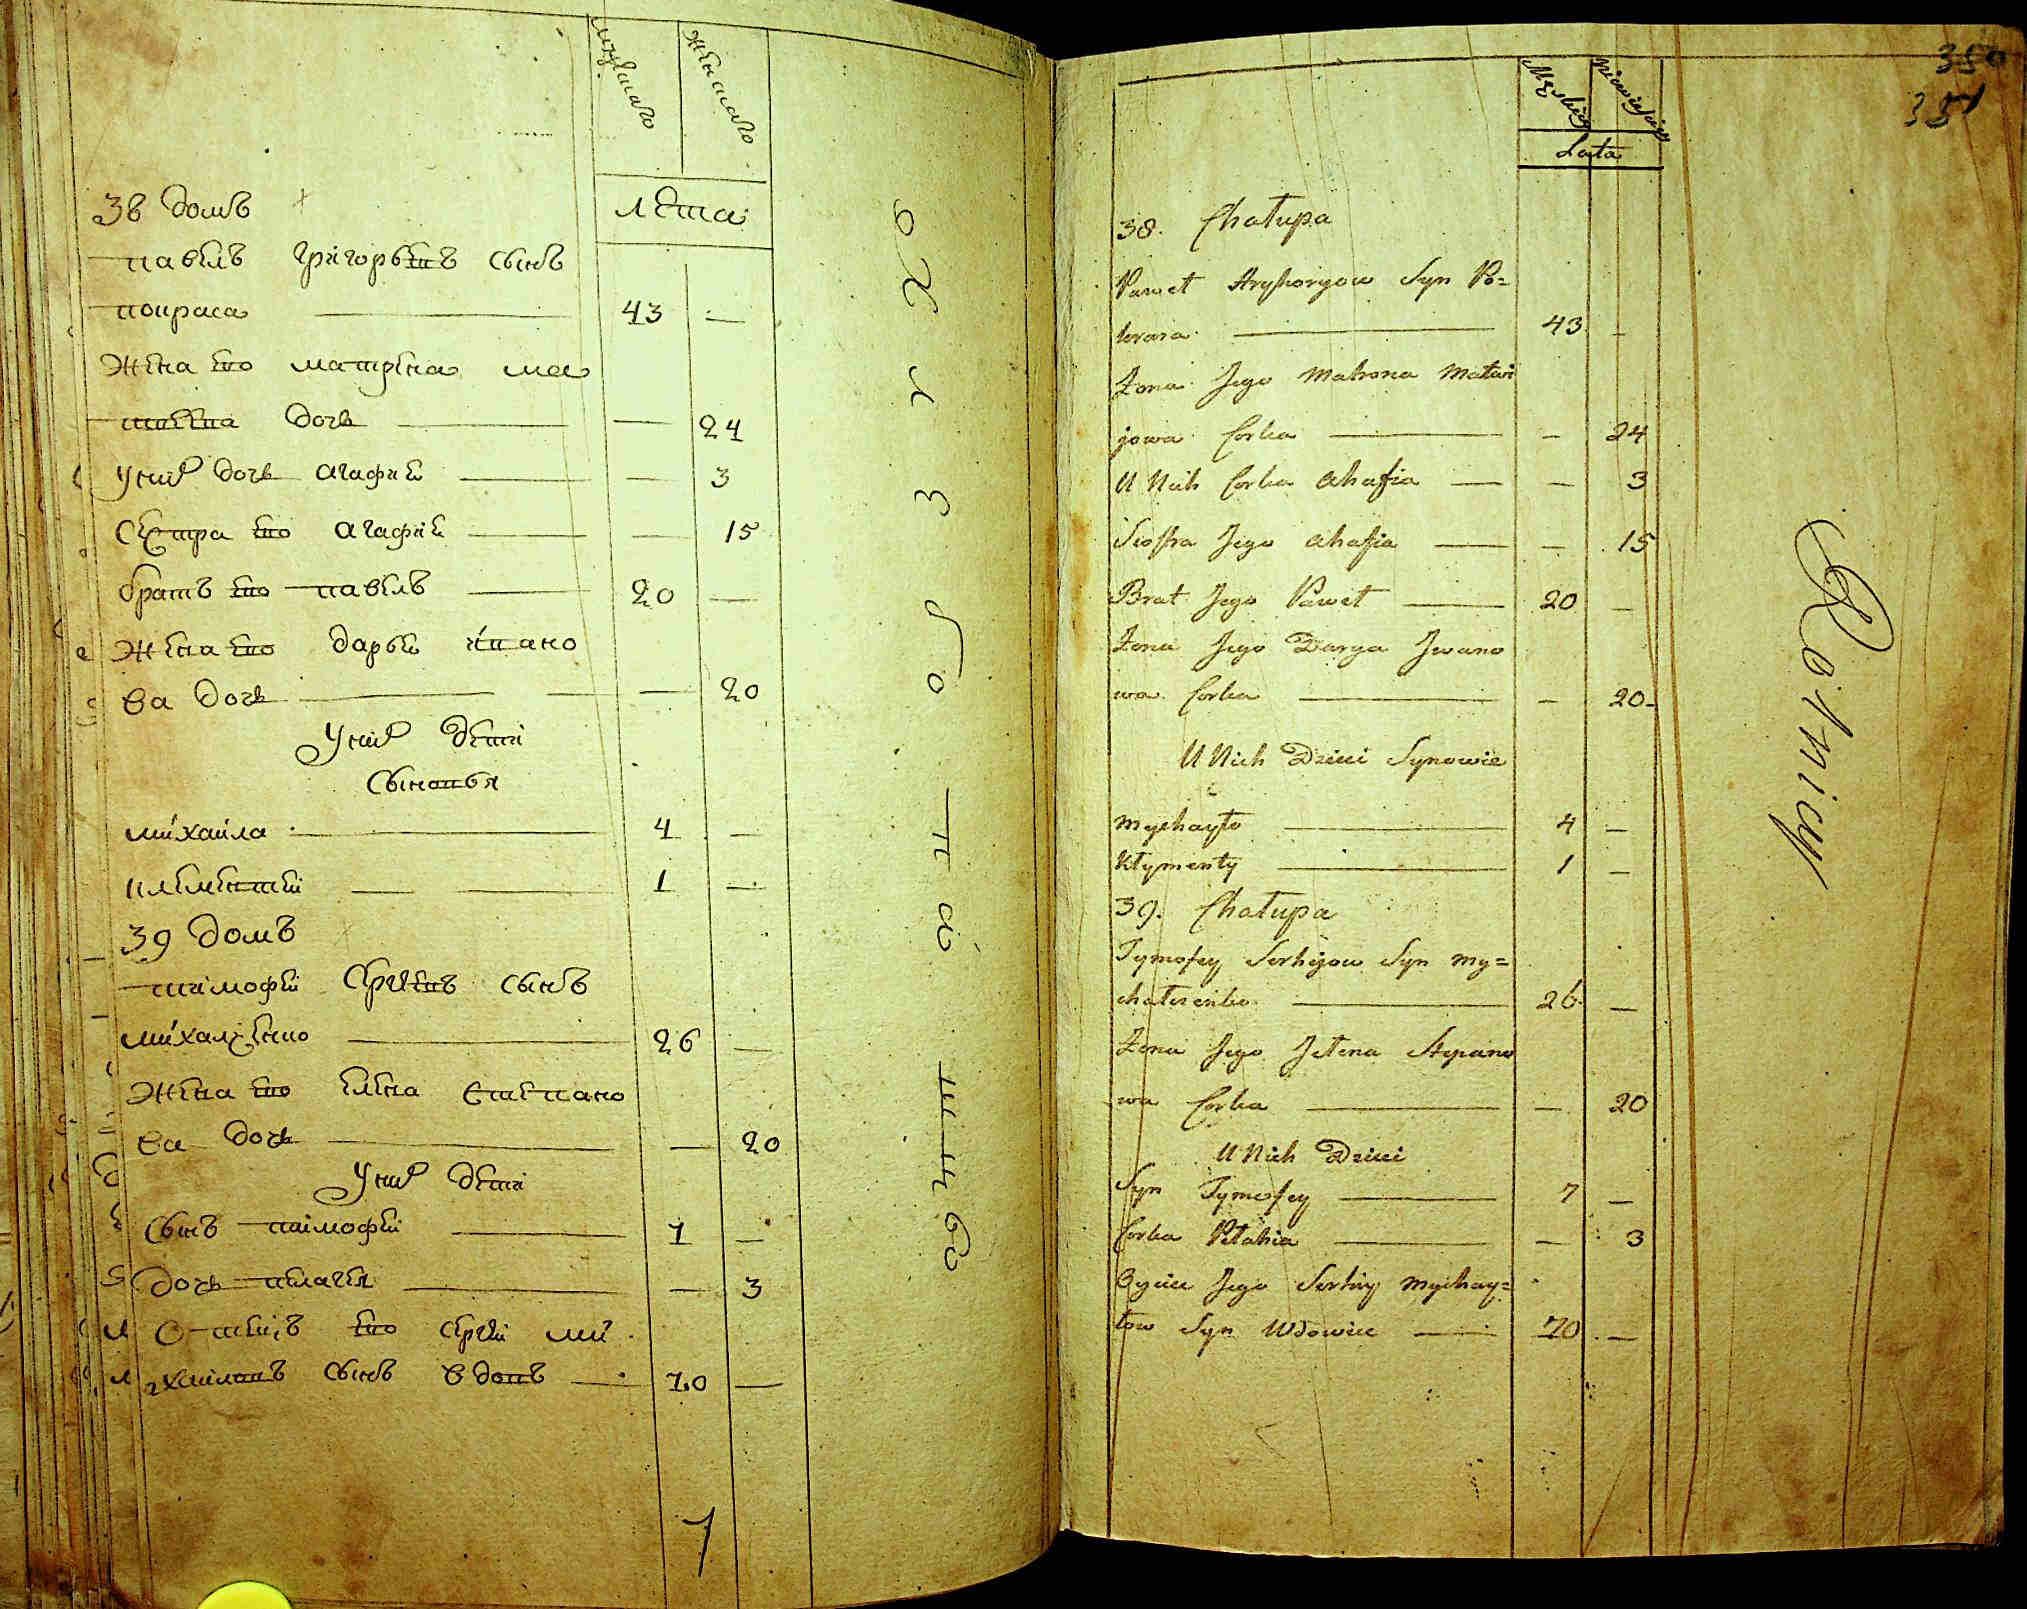 мужскаго женскаго
лета
38 домъ
павелъ григорьевъ сынъ
покраса 43 —
жена ево матрена мат
теева дочь — 24
у них дочь агафия — 3
сестра ево агафия — 15
братъ ево павелъ 20 —
жена ево дарья ивано
ва дочь — 20
у них дети
сыновья
михайла 4 —
клементий 1 —
39 домъ
тимофей сергеевъ сынъ
михалченко 26 —
жена ево елена степано
ва дочь — 20
у них дети
сынъ тимофей 7 —
дочь пелагея — 3
отецъ ево сергей ми
хайловъ сынъ вдовъ 70 —
7
350
351
Męskiey Niewieściey
Lata
38. Chałupa
Paweł Hryhoryow Syn Po=
krasa 43 —
Żona Jego Matrona Matwi
jowa Corka — 24
U Nich Corka Ahafia — 3
Siostra Jego Ahafia — 15
Brat Jego Paweł 20 —
Żona Jego Darya Jwano
wa Corka — 20
U Nich Dzieci Synowie
Mychayło 4 —
Kłymenty 1 —
39. Chałupa
Tymofey Serhijow Syn My=
chalczenko 26 —
Żona Jego Jelena Stepano
wa Corka — 20
U Nich Dzieci
Syn Tymofey 7 —
Corka Pelahia — 3
Oyciec Jego Serhiy Mychay=
łow Syn Wdowiec 70 —
Rolnicy